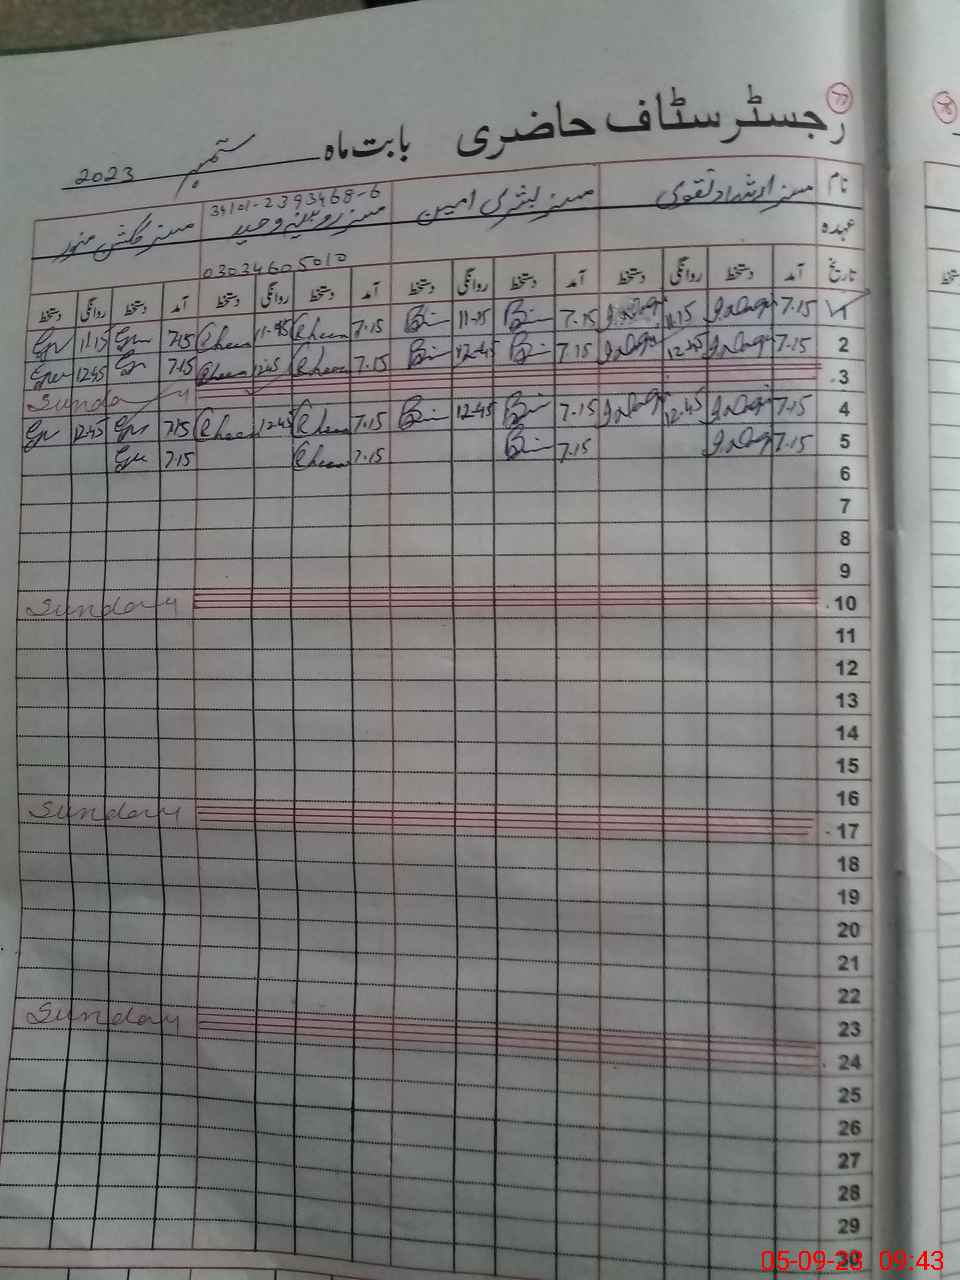 رجسٹر سٹاف حاضری بابت ماہ ستمبر 2023
نام مسز ارشاد نقوی مسز بشریٰ امین مسز روبینہ وحید 34101-2393468-6 مسز منور
عہدہ 03034605010
تاریخ آمد دستخط روانگی دستخط آمد دستخط روانگی دستخط آمد دستخط روانگی دستخط آمد دستخط روانگی دستخط
1 7.15 11.15 7.15 11-15 7.15 11-45 7.15 11.15
2 7.15 12.45 7.15 12-45 7.15 12.45 7.15 12.45
3 Sunday
4 7.15 12.45 7.15 12.45 7.15 12.45 7.15 12.45
5 7.15 7.15 7.15 7.15
6
7
8
9
10 Sunday
11
12
13
14
15
16
17 Sunday
18
19
20
21
22
23
24 Sunday
25
26
27
28
29
30
05-09-23 09:43